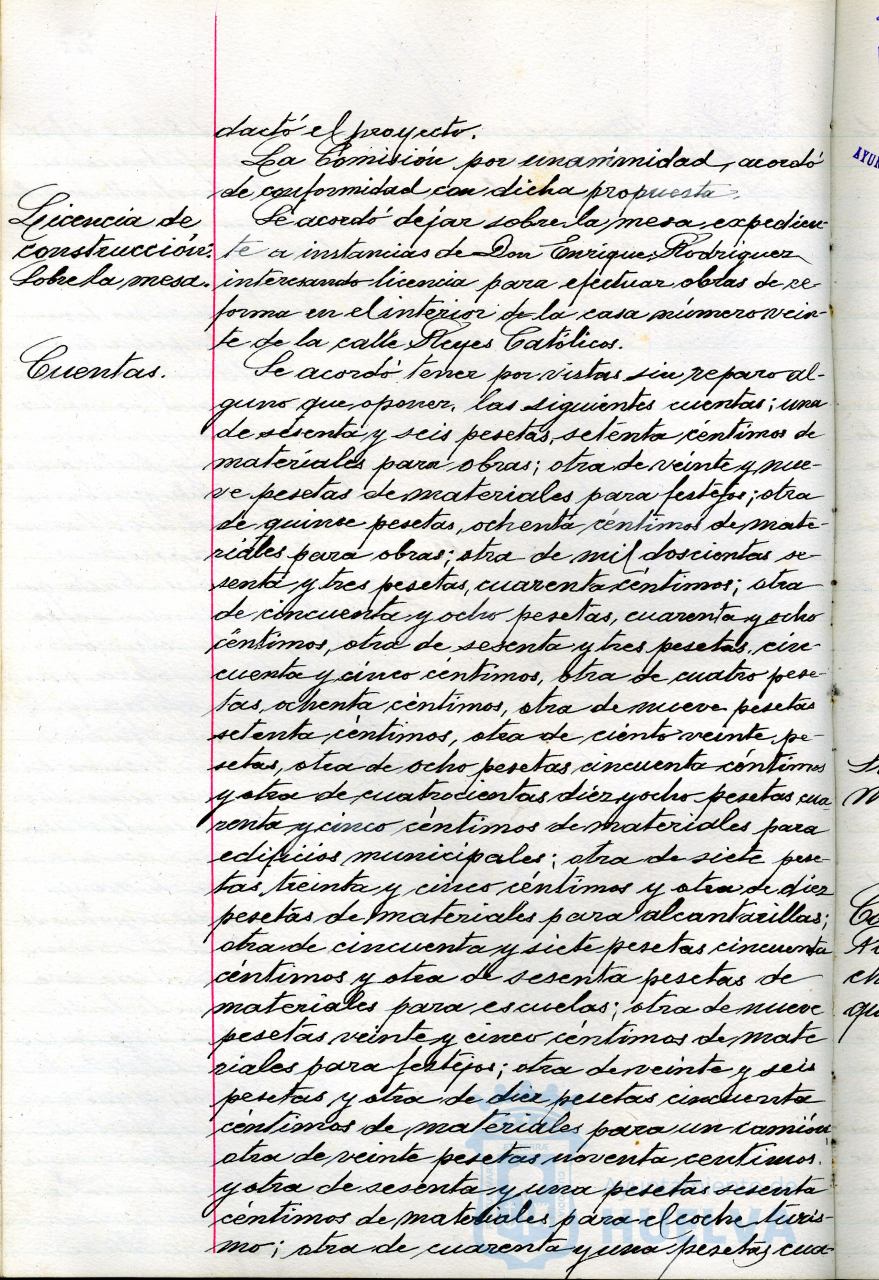 dactó el proyecto.
La Comisión por unanimidad, acordó
de conformidad con dicha propuesta.
Licencia de
construcción.
Sobre la mesa.
Se acordó dejar sobre la mesa expedien-
te a instancias de Don Enrique Rodriguez
interesando licencia para efectuar obras de re-
forma en el interior de la casa número vein-
te de la calle Reyes Católicos.
Cuentas.
Se acordó tener por vistas sin reparo al-
guno que oponer, las siguientes cuentas; una
de sesenta y seis pesetas, setenta céntimos de
materiales para obras; otra de veinte y nue-
ve pesetas de materiales para festejos; otra
de quince pesetas, ochenta céntimos de mate-
riales para obras; otra de mil doscientas se-
senta y tres pesetas, cuarenta céntimos; otra
de cincuenta y ocho pesetas, cuarenta y ocho
céntimos, otra de sesenta y tres pesetas, cin-
cuenta y cinco céntimos, otra de cuatro pese-
tas, ochenta céntimos, otra de nueve pesetas
setenta céntimos, otra de ciento veinte pe-
setas, otra de ocho pesetas cincuenta céntimos
y otra de cuatrocientas diez y ocho pesetas cua-
renta y cinco céntimos de materiales para
edificios municipales; otra de siete pese-
tas, treinta y cinco céntimos y otra de diez
pesetas de materiales para alcantarillas;
otra de cincuenta y siete pesetas cincuenta
céntimos y otra de sesenta pesetas de
materiales para escuelas; otra de nueve
pesetas veinte y cinco céntimos de mate
riales para festejos; otra de veinte y seis
pesetas y otra de diez pesetas cincuenta
céntimos de materiales para un camión,
otra de veinte pesetas noventa centimos.
y otra de sesenta y una pesetas sesenta
céntimos de materiales para el coche turis-
mo; otra de cuarenta y una pesetas cua-
Ayuntamiento de
HUELVA